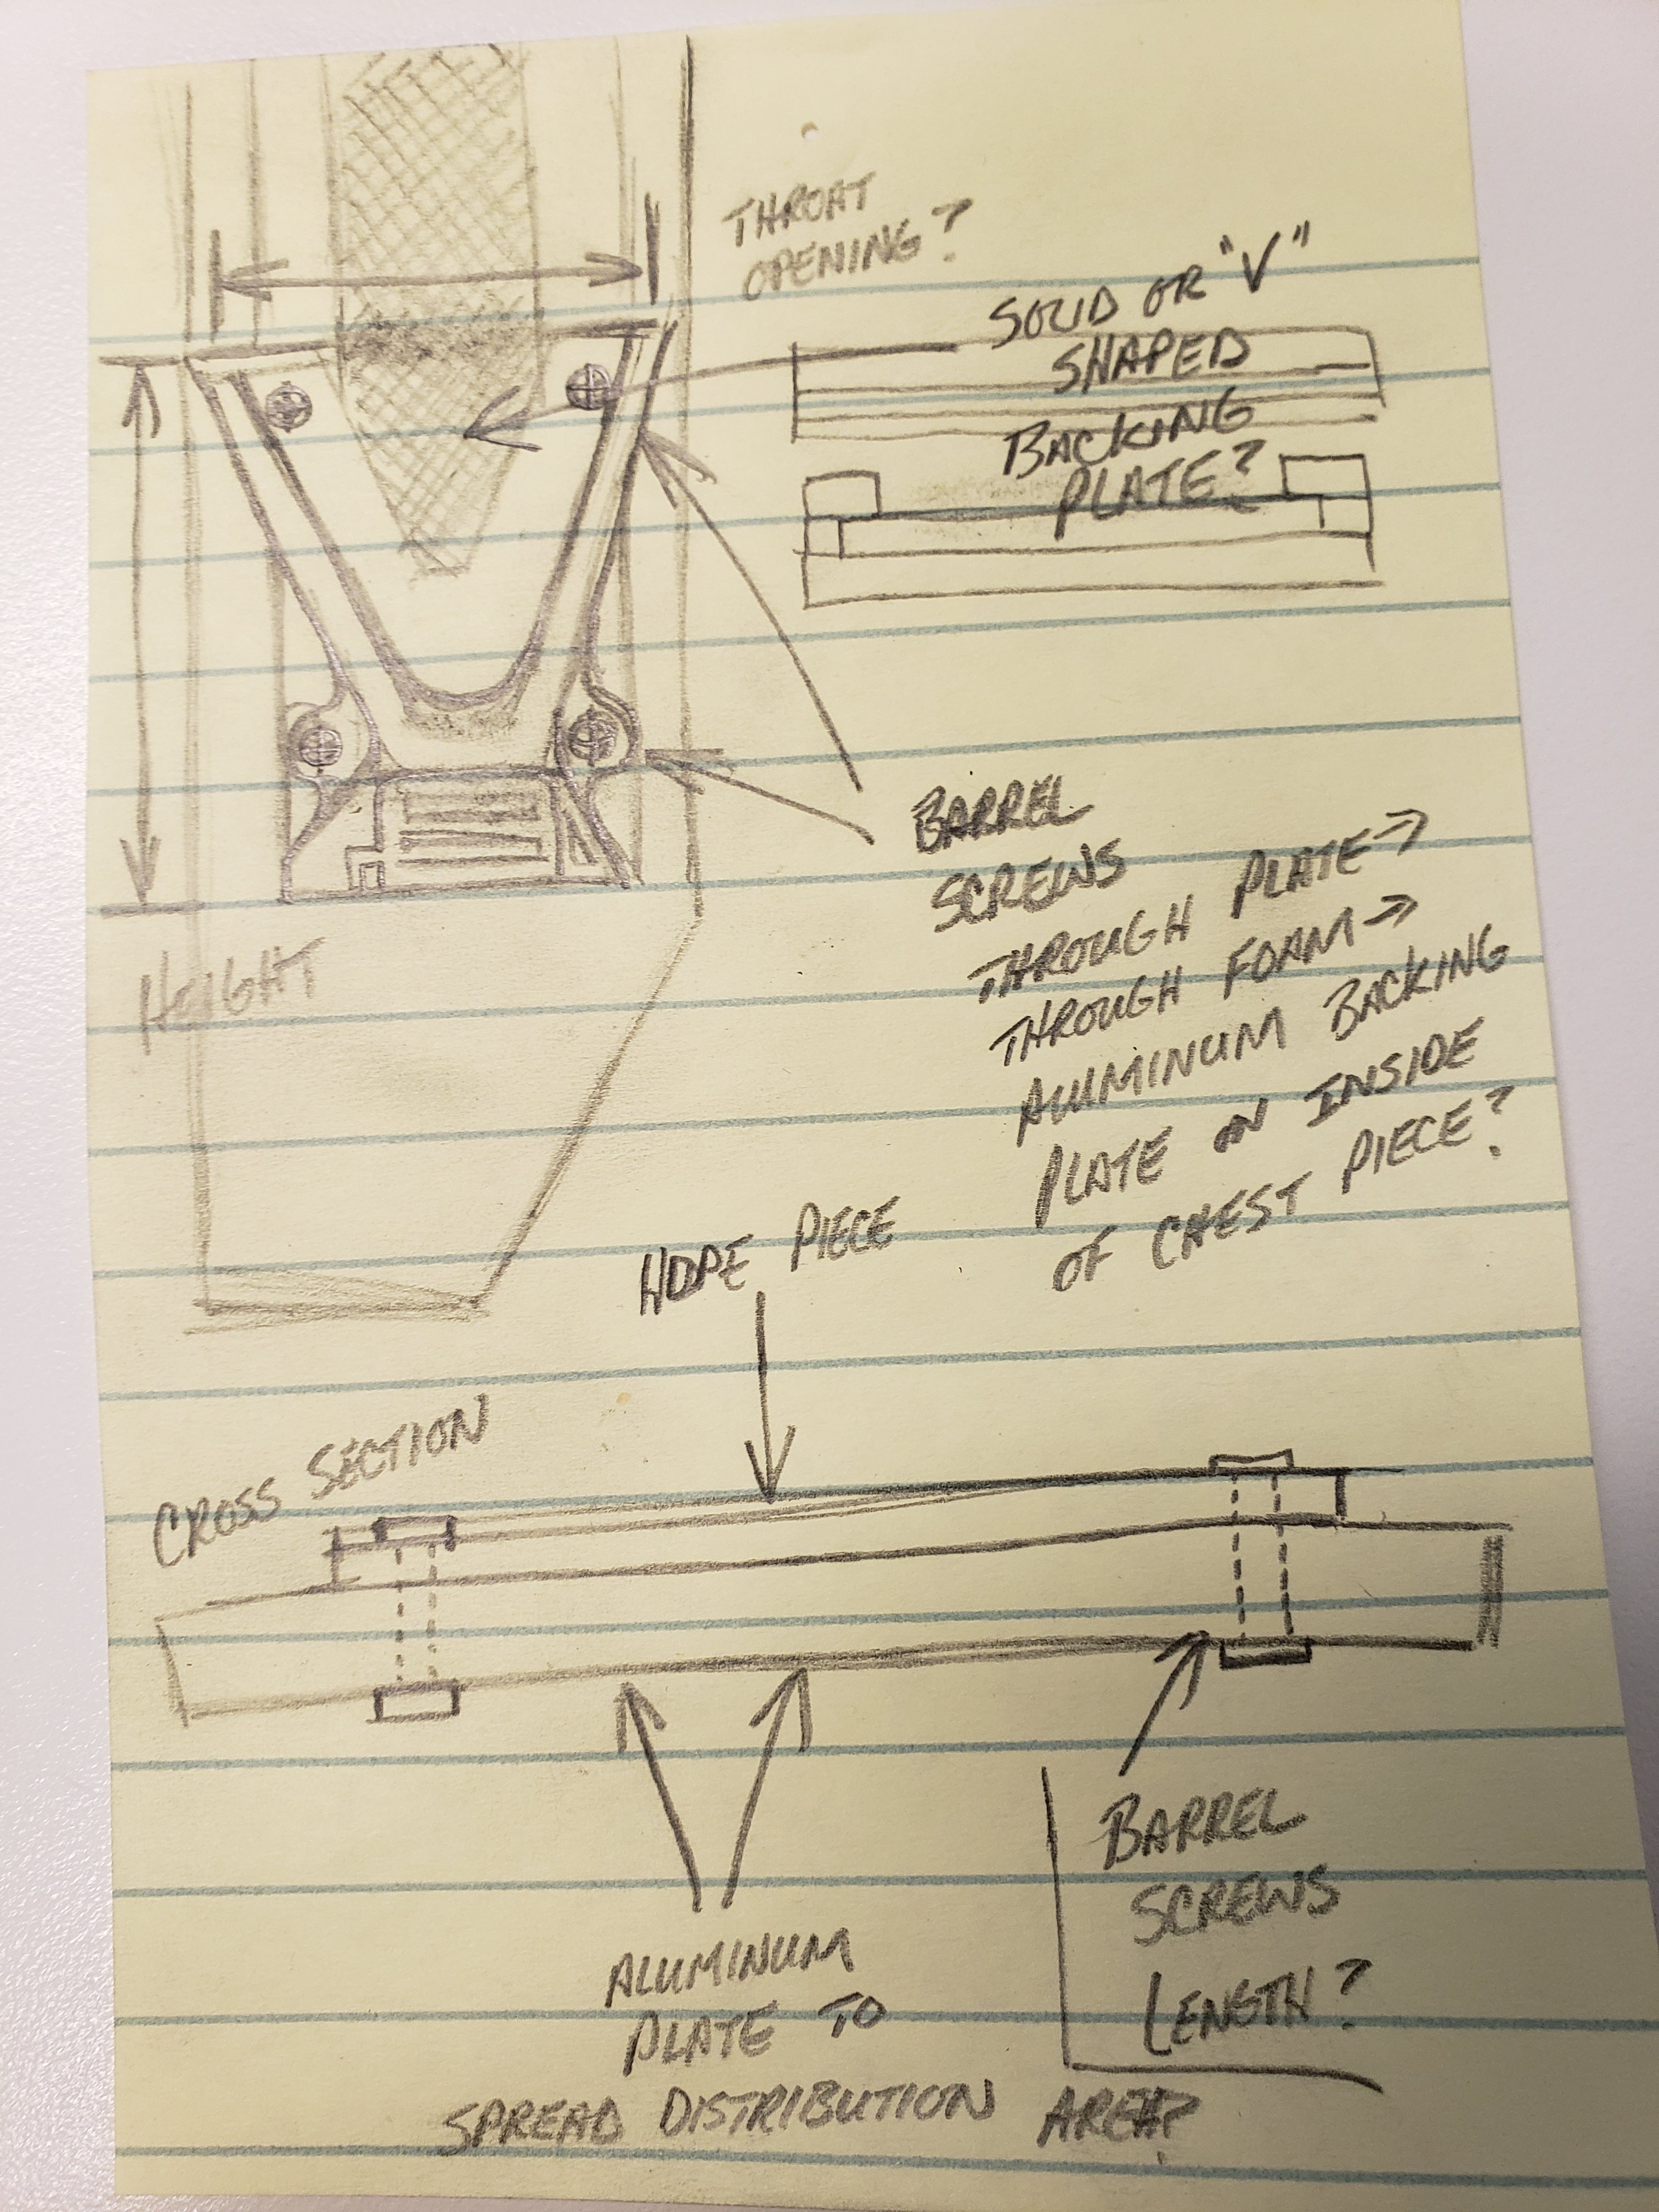 THROAT
OPENING?
SOLID OR "V"
SHAPED
BACKING
PLATE?
BARREL
SCREWS
THROUGH PLATE→
THROUGH FOAM→
ALUMINUM BACKING
PLATE ON INSIDE
OF CHEST PIECE?
HEIGHT
HDPE PIECE
CROSS SECTION
BARREL
SCREWS
LENGTH?
ALUMINUM
PLATE TO
SPREAD DISTRIBUTION AREA?